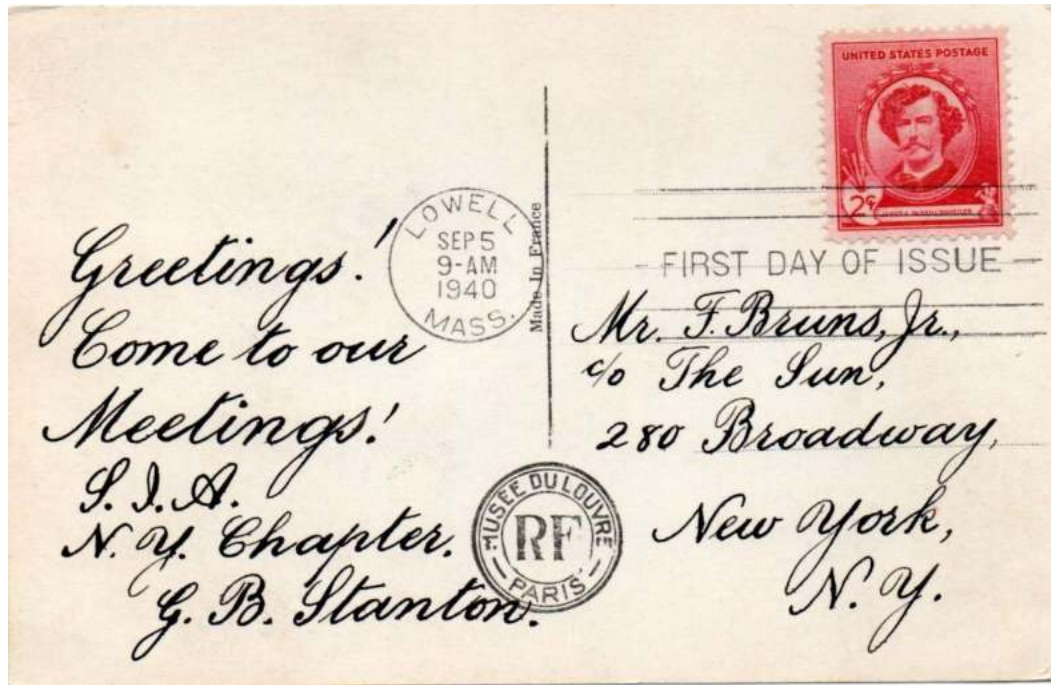 UNITED STATES POSTAGE
2¢
LOWELL
SEP 5
9-AM
1940
MASS.
FIRST DAY OF ISSUE
Made In France
Greetings!
Come to our
Meetings!
S.I.A.
N. Y. Chapter.
G. B. Stanton.
MUSÉE DU LOUVRE
RF
PARIS
Mr. F. Bruns, Jr.,
c/o The Sun,
280 Broadway,
New York,
N. Y.